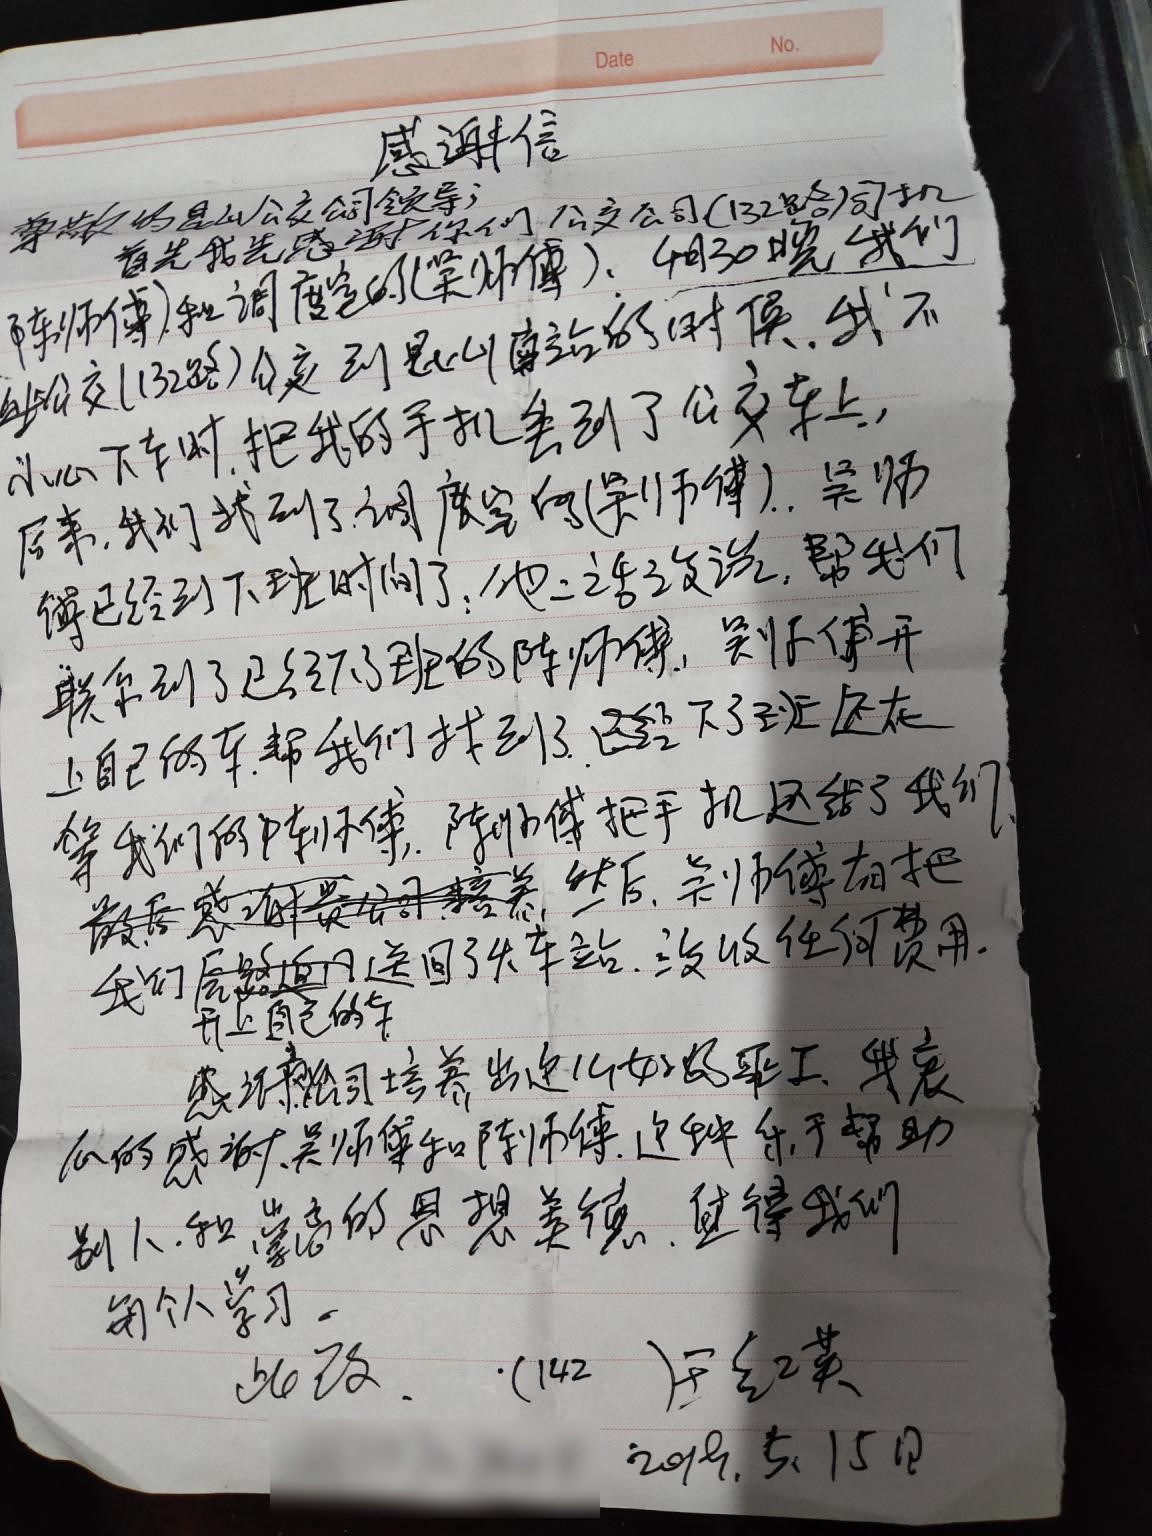 Date No.
感谢信
尊敬的昆山公交公司领导;
首先我先感谢你们公交公司(132路)司机
陈师傅)和调度室的(吴师傅)、4月30晚我们
坐公交(132路)公交到昆山南站的时候、我不
小心下车时、把我的手机丢到了公交车上,
后来、我们找到了调度室的(吴师傅)、吴师
傅已经到下班时间了;他二话没说、帮我们
联系到了已经下了班的陈师傅、吴师傅开
上自己的车、帮我们找到了、已经下了班还在
等我们的陈师傅、陈师傅把手机还给了我们、
最后感谢贵公司培养、然后、吴师傅有把
我们 送回了火车站、没收任何费用.
开上自己的车
感谢 公司培养出这么好的职工、我衷
心的感谢、吴师傅和陈师傅、这种乐于帮助
别人、和崇高的思想美德、值得我们
每个人学习.
此致. (142 )王红英
2019. 5. 15日